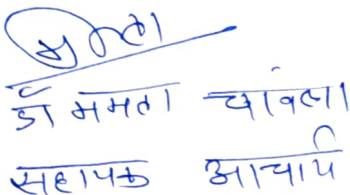 ममता
डॉ ममता चावला
सहायक आचार्य